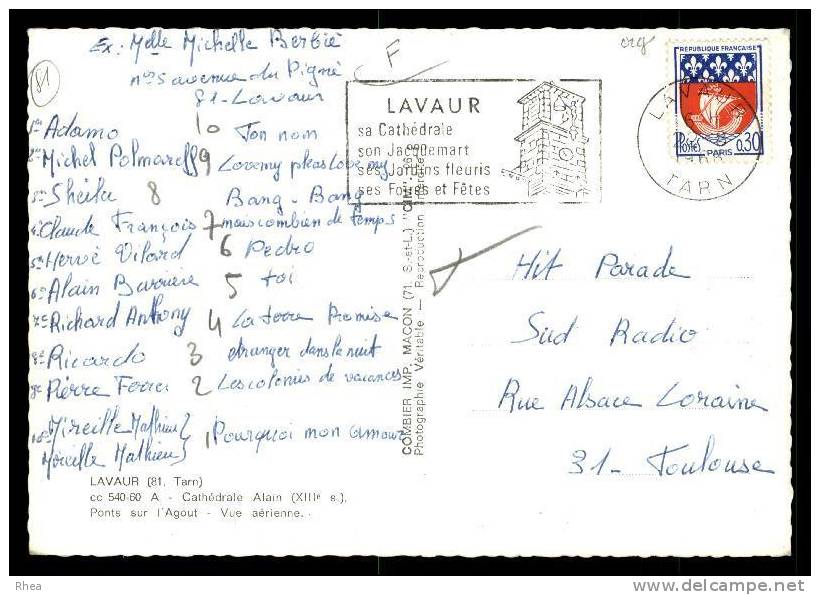 Ex: Melle Michelle Berbié
n°5 avenue du Pigné
81-Lavaur
81
F
org
1er Adamo 10 Ton nom
2e Michel Polmareff 9 Lovemy pleas love my
3e Sheila 8 Bang-Bang
4e Claude François 7 mais combien de temps
5e Hervé Vilard 6 Pedro
6e Alain Barriere 5 toi
7e Richard Anthony 4 La terre Promise
8e Ricardo 3 etranger dans la nuit
9e Pierre Ferrer 2 Les colonies de vacances
10e Mireille Mathieu 1 Pourquoi mon amour
Mireille Mathieu
LAVAUR (81. Tarn)
cc 540-60 A - Cathédrale Alain (XIIIe s.).
Ponts sur l'Agout - Vue aérienne.
COMBIER IMP. MACON (71. S.-et-L.) "CIM"
Photographie Véritable — Reproduction interdite
LAVAUR
sa Cathédrale
son Jacquemart
ses Jardins fleuris
ses Foires et Fêtes
LAVAUR
TARN
REPUBLIQUE FRANÇAISE
POSTES PARIS 0,30
Hit Parade
Sud Radio
Rue Alsace Loraine
31-Toulouse
Rhea
www.delcampe.net